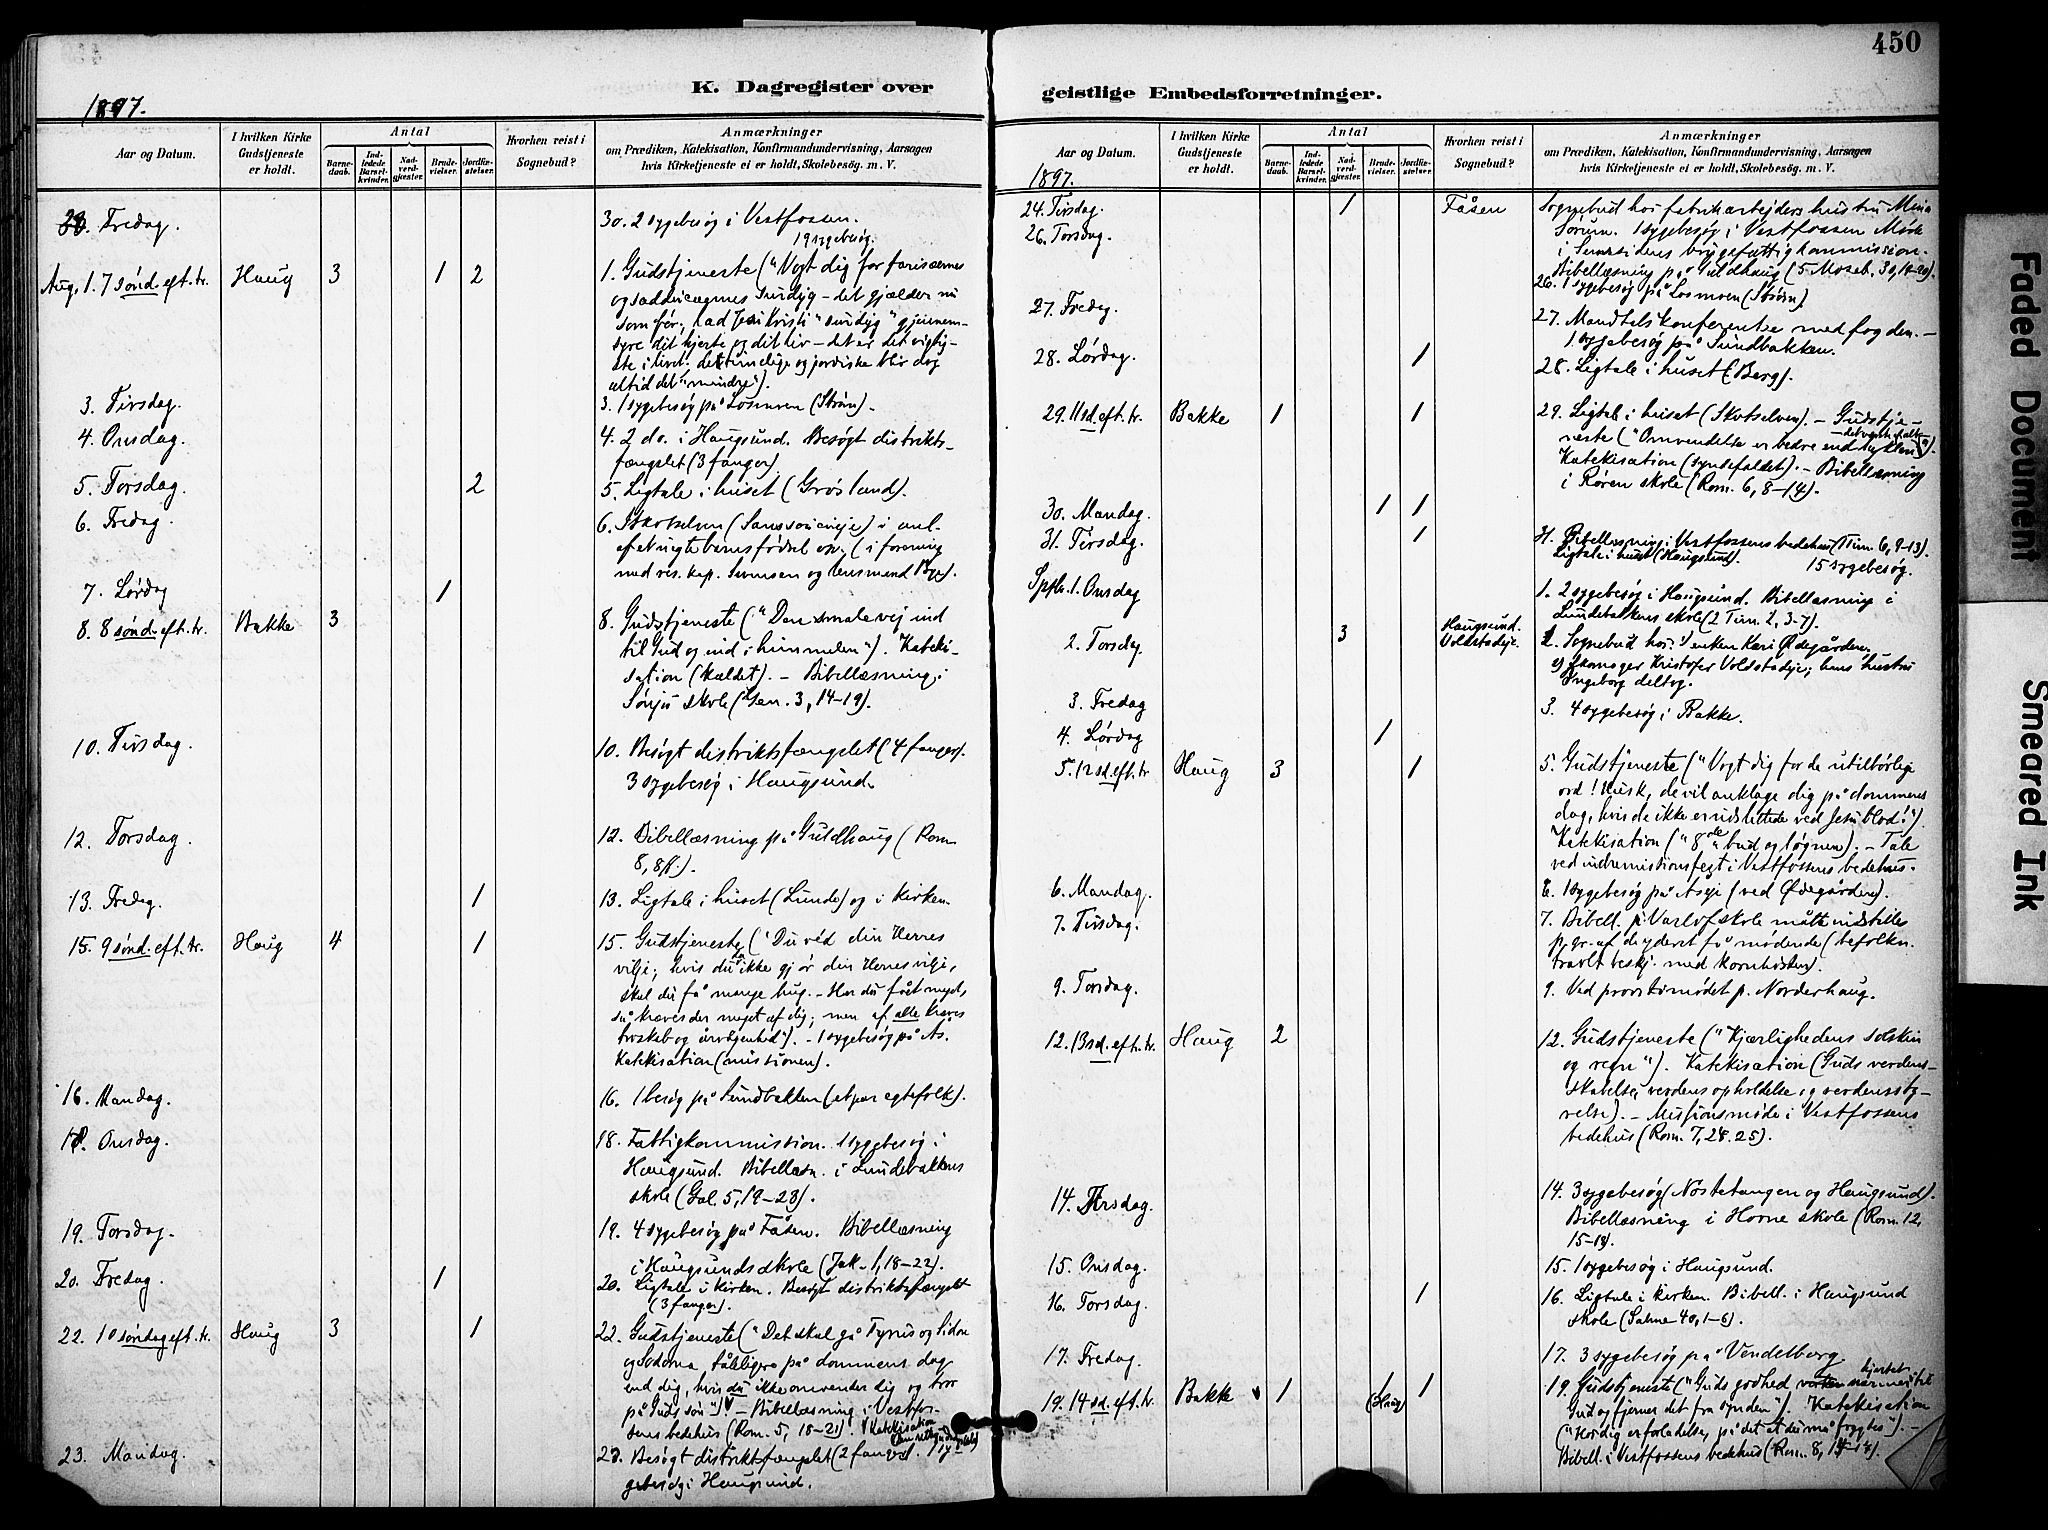 450
K. Dagregister over
geistlige Embedsforretninger.
1897.
Aar og Datum.
I hvilken Kirke Gudstjeneste er holdt.
Antal
Barnedaab.
Indledede Barselkvinder.
Nadverdgjæster.
Brudevielser.
Jordfæstelser.
Hvorhen reist i Sognebud?
Anmærkninger
om Prædiken, Katekisation, Konfirmandundervisning, Aarsagen
hvis Kirketjeneste ei er holdt, Skolebesøg. m. V.
30. Fredag.
30. 2 sygebesøg i Vestfossen.
1 sygebesøg.
Aug. 1. 7 sønd. eft. tr. Haug 3 1 2
1. Gudstjeneste ("Vogt dig for farisæernes
og sadducæernes surdejg – det gjælder nu
som før; lad Jesu Kristi "surdejg" gjennem-
syre dit hjerte og dit liv – det er det vigtig-
ste i livet; det timelige og jordiske blir dog
altid det "mindre").
3. Tirsdag.
3. 1 sygebesøg på Losmoen (Strøm).
4. Onsdag.
4. 2 do. i Haugsund. Besøgt distrikts-
fængslet (3 fanger).
5. Torsdag. 2
5. Ligtale i huset (Grøsland).
6. Fredag.
6. I Skotselven (Sanssouceje) i anl.
af et uægte barns fødsel osv. (i forening
med res. kap. Svensen og lensmand Bye).
7. Lørdag 1
8. 8 sønd. eft. tr. Bakke 3
8. Gudstjeneste ("Den smale vej ind
til Gud og ind i himmelen"). Kateki-
sation (kaldet). – Bibellæsning i
skole (Gen. 3, 14–19).
10. Tirsdag.
10. Besøgt distriktsfængslet (4 fanger).
3 sygebesøg i Haugsund.
12. Torsdag.
12. Bibellæsning på Guldhaug (Rom.
8, 8ff.).
13. Fredag. 1
13. Ligtale i huset (Lunde) og i kirken.
15. 9 sønd. eft. tr. Haug 4 1
15. Gudstjeneste ("Du véd din Herres
vilje; hvis du da ikke gjør din Herres vilje,
skal du få mange hug. – Har du fået meget,
så kræves der meget af dig; men af alle kræves
troskab og årvågenhed"). – 1 sygebesøg på Ås.
Katekisation (missionen).
16. Mandag.
16. 1 besøg på Sundbakken (et par egtefolk).
18. Onsdag.
18. Fattigkommission. 1 sygebesøg i
Haugsund. Bibellæsn. i Lundebakkens
skole (Gal. 5, 19–23).
19. Torsdag.
19. 4 sygebesøg på Fåsen. Bibellæsning
i Haugsunds skole (Jak. 1, 18–22).
20. Fredag. 1
20. Ligtale i kirken. Besøgt distriktsfængslet
(3 fanger).
22. 10 søndag eft. tr. Haug 3 1
22. Gudstjeneste ("Det skal gå Tyrus og Sidon
og Sodoma tåleligere på dommens dag
end dig, hvis du ikke omvender dig og tror
på Guds søn"). – Bibellæsning i Vestfos-
sens bedehus (Rom. 5, 18–21). Katekisation
23. Mandag.
23. Besøgt distriktsfængslet (2 fanger). 1 sy-
gebesøg i Haugsund.
Aar og Datum.
I hvilken Kirke Gudstjeneste er holdt.
Antal
Barnedaab.
Indledede Barselkvinder.
Nadverdgjæster.
Brudevielser.
Jordfæstelser.
Hvorhen reist i Sognebud?
Anmærkninger
om Prædiken, Katekisation, Konfirmandundervisning, Aarsagen
hvis Kirketjeneste ei er holdt, Skolebesøg. m. V.
1897.
24. Tirsdag. 1 Fåsen
Sognebud hos fabrikarbejders hustru
1 sygebesøg i Vestfossen. Møde
i fattigkommission.
26. Torsdag.
Bibellæsning på Guldhaug (5 Moseb. 30,
26. 1 sygebesøg på Losmoen (Strøm)
27. Fredag.
27. Mandtalskonferentse med fogden. –
1 sygebesøg på Sundbakken.
28. Lørdag. 1
28. Ligtale i huset (Berg).
29. 11 sd. eft. tr. Bakke 1 1
29. Ligtale i huset (Skotselven). – Gudstje-
neste ("Omvendelse er bedre end
Katekisation (syndefaldet). – Bibellæsning
i Røren skole (Rom. 6, 8–14).
30. Mandag. 1 1
31. Tirsdag. 1
31. Bibellæsning i Vestfossens bedehus (1 Tim. 6, 9–13).
Ligtale i huset (Haugsund). 1 sygebesøg.
Sptbr. 1. Onsdag
1. 2 sygebesøg i Haugsund. Bibellæsning i
Lundebakkens skole (2 Tim. 2, 3–7).
2. Torsdag. 3 Haugsund. Voldstadeje.
2. Sognebud hos: 1 enken Kari Ødegården
og skomager Kristofer Voldstadeje; hans hustru
Ingeborg deltog.
3. Fredag
3. 4 sygebesøg i Bakke.
4. Lørdag 1
5. 12 sd. eft. tr. Haug 3 1
5. Gudstjeneste ("Vogt dig for de utilbørlige
ord! Husk, de vil anklage dig på dommens
dag, hvis de ikke er udslettede ved Jesu blod!").
Katekisation ("8de" bud og løgnen). – Tale
ved indremissionsfest i Vestfossens bedehus.
6. Mandag.
6. 1 sygebesøg på Åseje (ved Ødegården).
7. Tirsdag.
7. Bibell. på Varlo skole måtte indstilles
p. gr. af de yderst få mødende (befolkn.
travlt beskj. med kornhøsten).
9. Torsdag.
9. Ved provstimødet p. Norderhaug.
12. 13 sd. eft. tr. Haug 2
12. Gudstjeneste ("Kjærlighedens solskin
og regn"). Katekisation (Guds verdens-
skabelse, verdens opholdelse og verdenssty-
relse). – Missionsmøde i Vestfossens
bedehus (Rom. 7, 24. 25).
14. Tirsdag.
14. 3 sygebesøg (Nøstetangen og Haugsund).
Bibellæsning i Horne skole (Rom. 12,
15–18).
15. Onsdag.
15. 1 sygebesøg i Haugsund.
16. Torsdag. 1
16. Ligtale i kirken. Bibell. i Haugsund
skole (Salme 40, 1–6).
17. Fredag.
17. 3 sygebesøg på Vendelborg
19. 14 sd. eft. tr. Bakke 1 1 (Haug) 1
19. Gudstjeneste ("Guds godhed hjertet nærmere til
Gud og fjerner det fra synden"). Katekisation
("Hos dig er forladelse, på det at du må frygtes"). –
Bibell. i Vestfossens bedehus (Rom. 8, 14–18).
Faded Document
Smeared Ink